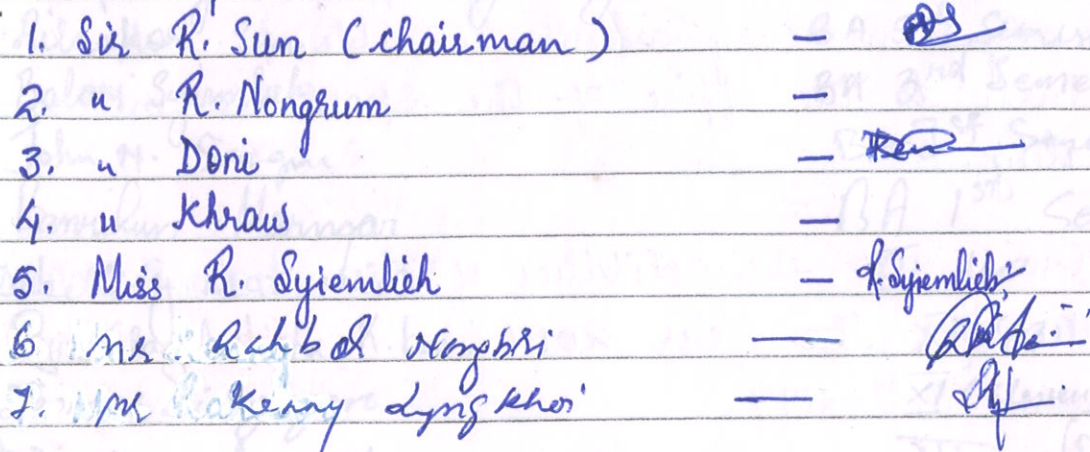 1. Sir R. Sun (chairman) –
2. " R. Nongrum –
3. " Doni –
4. " Khraw –
5. Miss R. Syiemlieh – R. Syiemlieh
6 Mr. Rahbok Nongbri —
7. Mr Kenny Lyngkhoi —